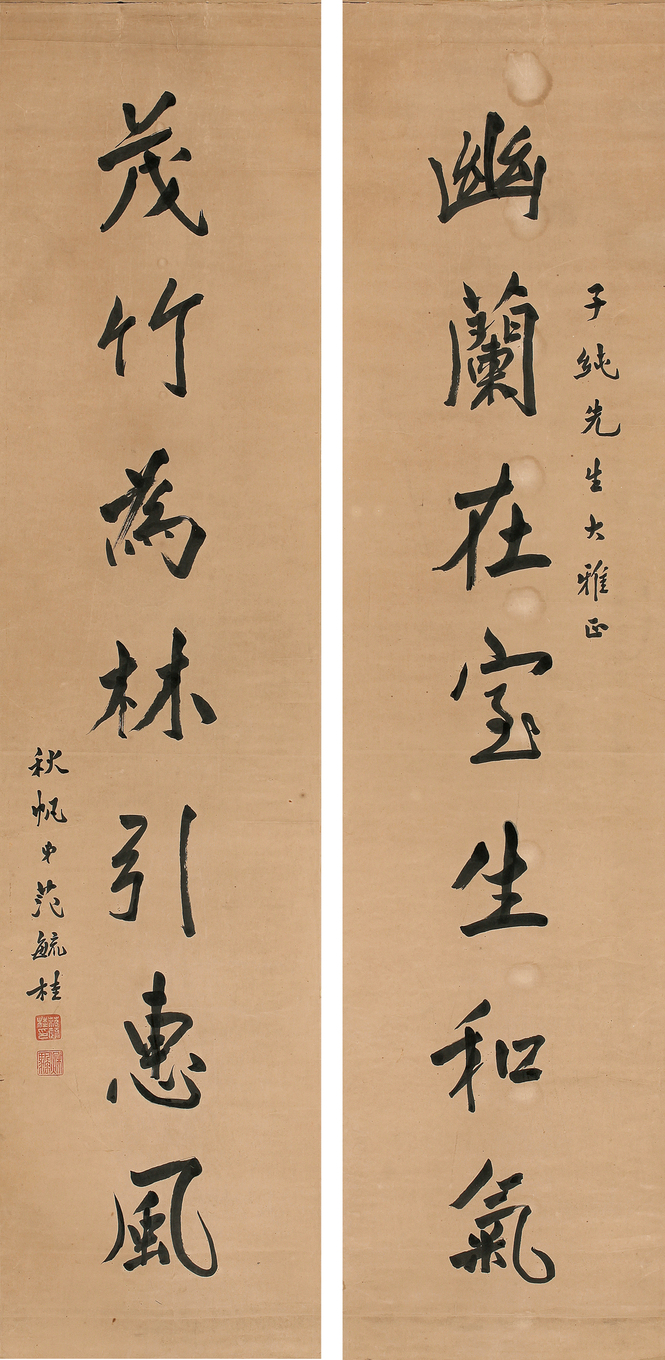 子純先生大雅正
幽蘭在室生和氣
茂竹為林引惠風
秋帆弟范毓桂